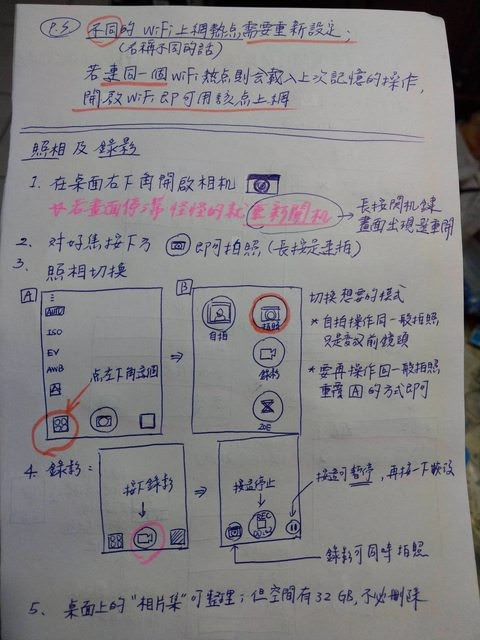 P.S. 不同的 WiFi 上網熱點需要重新設定；
(名稱不同的話)
若連同一個 WiFi 熱點則會載入上次記憶的操作，
開啟 WiFi 即可用該點上網
照相及錄影
1. 在桌面右下角開啟相机
若畫面停滯怪怪的就重新開机 → 長按開机鍵
畫面出現選重開
2. 对好焦按下方 即可拍照 (長按是連拍)
3. 照相切換
A
AUTO
ISO
EV
AWB
点左下角這個
⇒
B
自拍
拍照
錄影
ZOE
切換想要的模式
* 自拍操作同一般拍照
只是改前鏡頭
* 要再操作回一般拍照
重覆 A 的方式即可
4. 錄影：
按下錄影
⇒
按這停止
REC
按這可暫停，再按一下恢復
錄影可同時拍照
5. 桌面上的"相片集"可整理；但空間有 32 GB，不必刪除